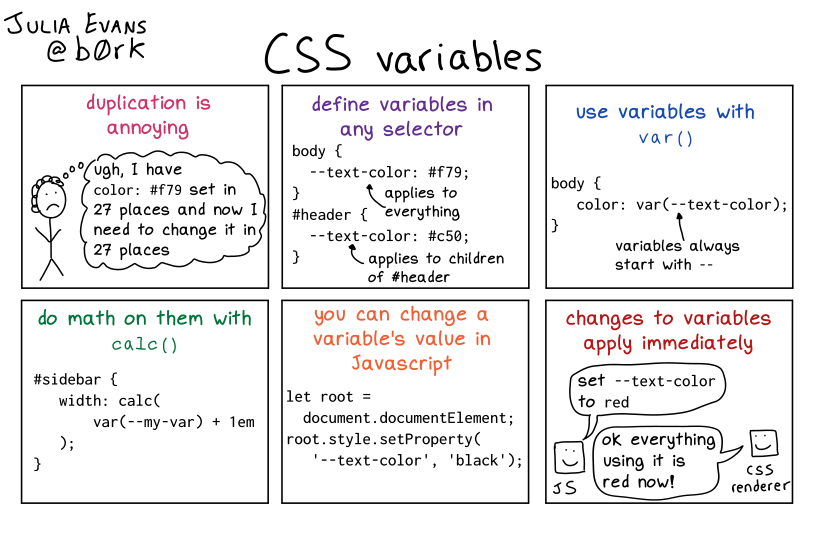 JULIA EVANS
@b0rk
CSS variables
duplication is
annoying
ugh, I have
color: #f79 set in
27 places and now I
need to change it in
27 places
define variables in
any selector
body {
--text-color: #f79;
}
applies to
everything
#header {
--text-color: #c50;
}
applies to children
of #header
use variables with
var()
body {
color: var(--text-color);
}
variables always
start with --
do math on them with
calc()
#sidebar {
width: calc(
var(--my-var) + 1em
);
}
you can change a
variable's value in
Javascript
let root =
document.documentElement;
root.style.setProperty(
'--text-color', 'black');
changes to variables
apply immediately
set --text-color
to red
JS
ok everything
using it is
red now!
CSS
renderer